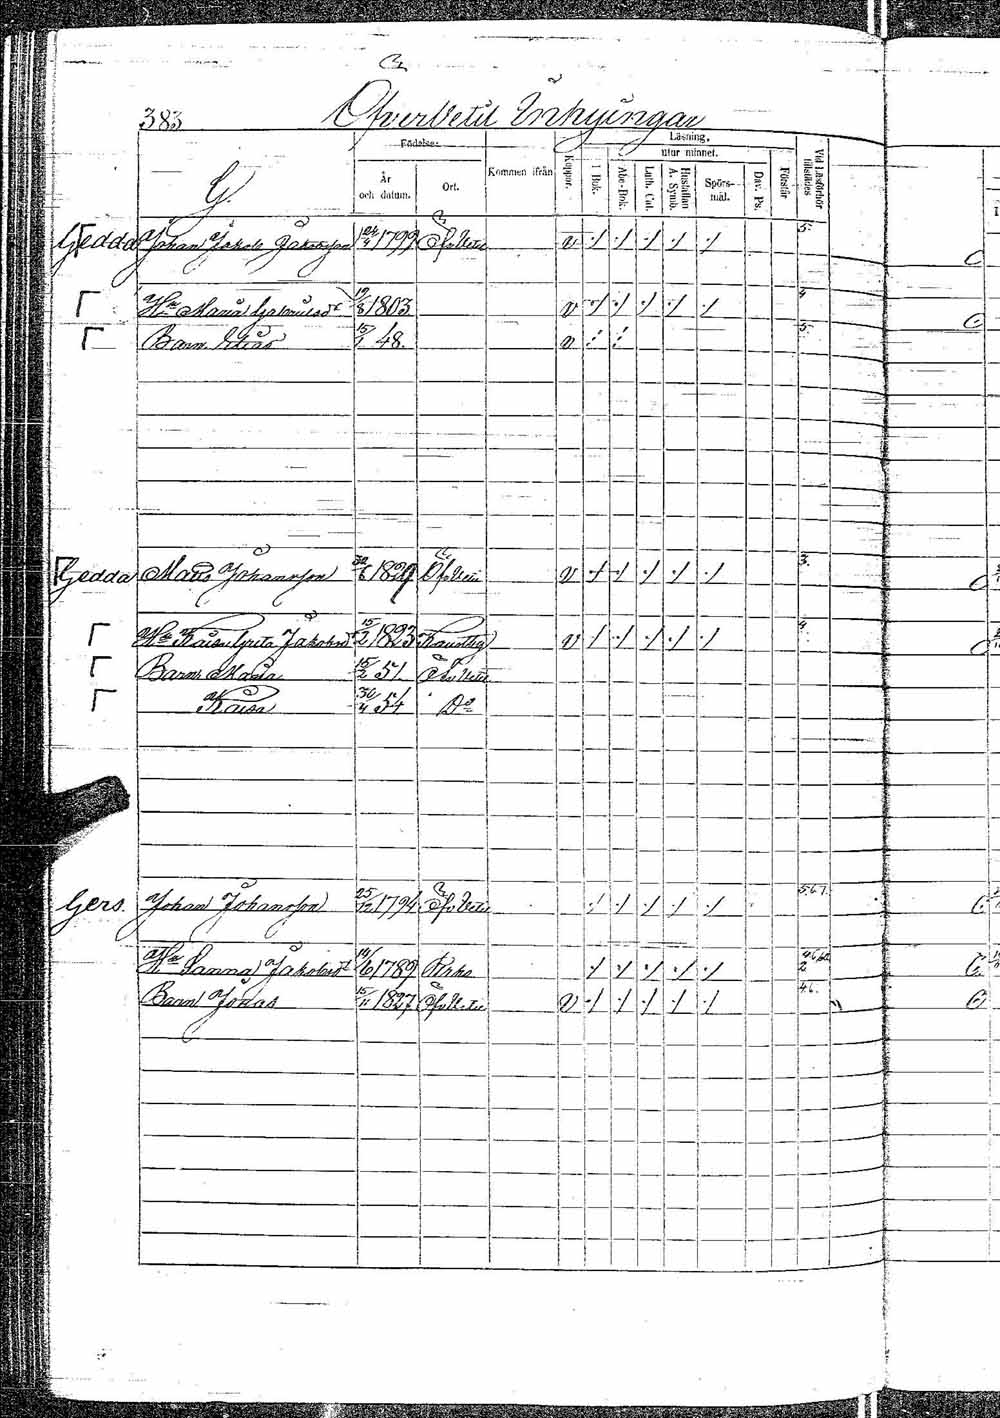 383 Öfvervetil Inhysingar
Födelse. Läsning.
utur minnet.
G. År och datum. Ort. Kommen ifrån Koppor. I Bok. Abc-Bok. Luth. Cat. Hustaflan A. Symb. Spörs-mål. Dav. Ps. Förstår Vid Läsförhör tillstädes
Gedda Johan Jakob Jakobsson 24/4 1799 ÖfvVetil v 5.
Hu Maria Gabrielsdr 19/8 1803 v 4
Barn Elias 48. v 5.
Gedda Matts Johansson 1829 ÖfvVetil v 3.
Hu Kaisa Greta Jakobsdr 15/2 1823 v 4
Barn Maria 15/2 51. ÖfvVetil
Kaisa 30/4 54 Do
Gers. Johan Johansson 25/12 1794 ÖfvVetil 5.6.7.
Hu Sanna Jakobsdr 14/6 1789 Kirko
Barn Jonas 15/11 1827 ÖfvVetil v 4.6.